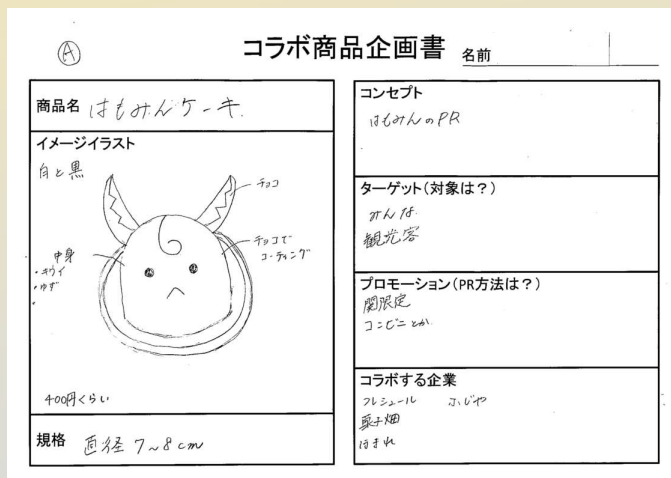 Ⓐ
コラボ商品企画書
名前
商品名 はもみんケーキ
イメージイラスト
白と黒
チョコ
チョコで
コーティング
中身
・キウイ
・ゆず
・
400円くらい
規格 直径 7~8cm
コンセプト
はもみんのPR
ターゲット(対象は?)
みんな
観光客
プロモーション(PR方法は?)
関限定
コンビニとか
コラボする企業
フレシュール ふじや
菓子畑
ほまれ